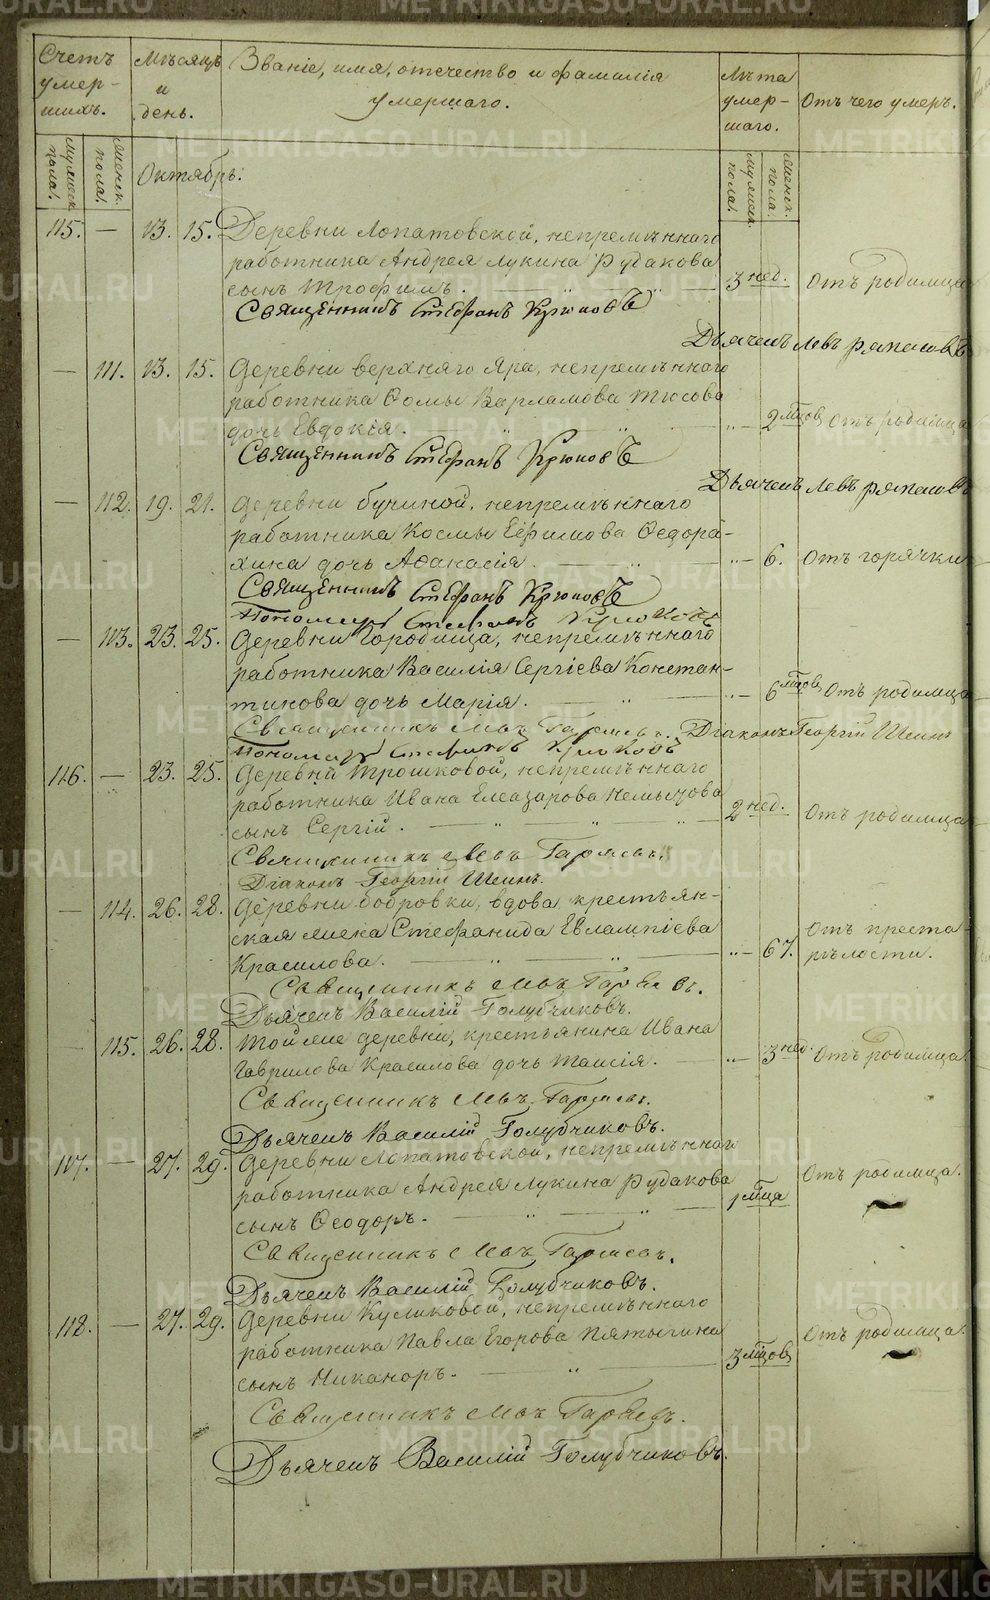 Счетъ умер-шихъ.
Мѣсяцъ и день.
Званіе, имя, отечество и фамилія умершаго.
Лѣта умер-шаго.
Отъ чего умеръ.
Мужеск. пола.
Женск. пола.
Октябрь.
Мужеск. пола.
Женск. пола.
115. — 13. 15. Деревни Лопатовской, непремѣннаго
работника Андрея Лукина Рудакова
сынъ Трофимъ. 3 нед. Отъ родимца
Священникъ Стефанъ Крюковъ
Дьячекъ Левъ
— 111. 13. 15. Деревни верхняго Яра, непремѣннаго
работника Ѳомы Варламова Тюсова
дочь Евдокія. 2 мѣсцов Отъ родимца
Священникъ Стефанъ Крюковъ
Дьячекъ Левъ
— 112. 19. 21. Деревни бучиной, непремѣннаго
работника Космы Ефимова Ѳедора-
хина дочь Аѳанасія. 6. Отъ горячки
Священникъ Стефанъ Крюковъ
Пономарь Стефанъ
— 113. 23. 25. Деревни Городища, непремѣннаго
работника Василія Сергіева Констан-
тинова дочь Марія. 6 мѣсцов Отъ родимца
Священникъ Левъ Гаряевъ. Діаконъ Георгій Шеинъ
Пономарь Стефанъ
116. — 23. 25. Деревни Трошковой, непремѣннаго
работника Ивана Елеазарова Немытова
сынъ Сергій. 2 нед. Отъ родимца
Священникъ Левъ Гаряевъ.
Діаконъ Георгій Шеинъ.
— 114. 26. 28. Деревни бобровки, вдова крестьян-
ская женка Стефанида Евлампіева
Красилова. 67. Отъ преста-
рѣлости.
Священникъ Левъ Гаряевъ.
Дьячекъ Василій Голубчиковъ.
115. 26. 28. Той же деревни, крестьянина Ивана
Гаврилова Красилова дочь Таисія. 3 нед. Отъ родимца
Священникъ Левъ Гаряевъ.
Дьячекъ Василій Голубчиковъ.
117. — 27. 29. Деревни Лопатовской, непремѣннаго
работника Андрея Лукина Рудакова
сынъ Ѳеодоръ. 1 мѣсца Отъ родимца.
Священникъ Левъ Гаряевъ.
Дьячекъ Василій Голубчиковъ.
118. — 27. 29. Деревни Куликовой, непремѣннаго
работника Павла Егорова Пятыгина
сынъ Никаноръ. 3 мѣсцов Отъ родимца.
Священникъ Левъ Гаряевъ.
Дьячекъ Василій Голубчиковъ.
METRIKI.GASO-URAL.RU